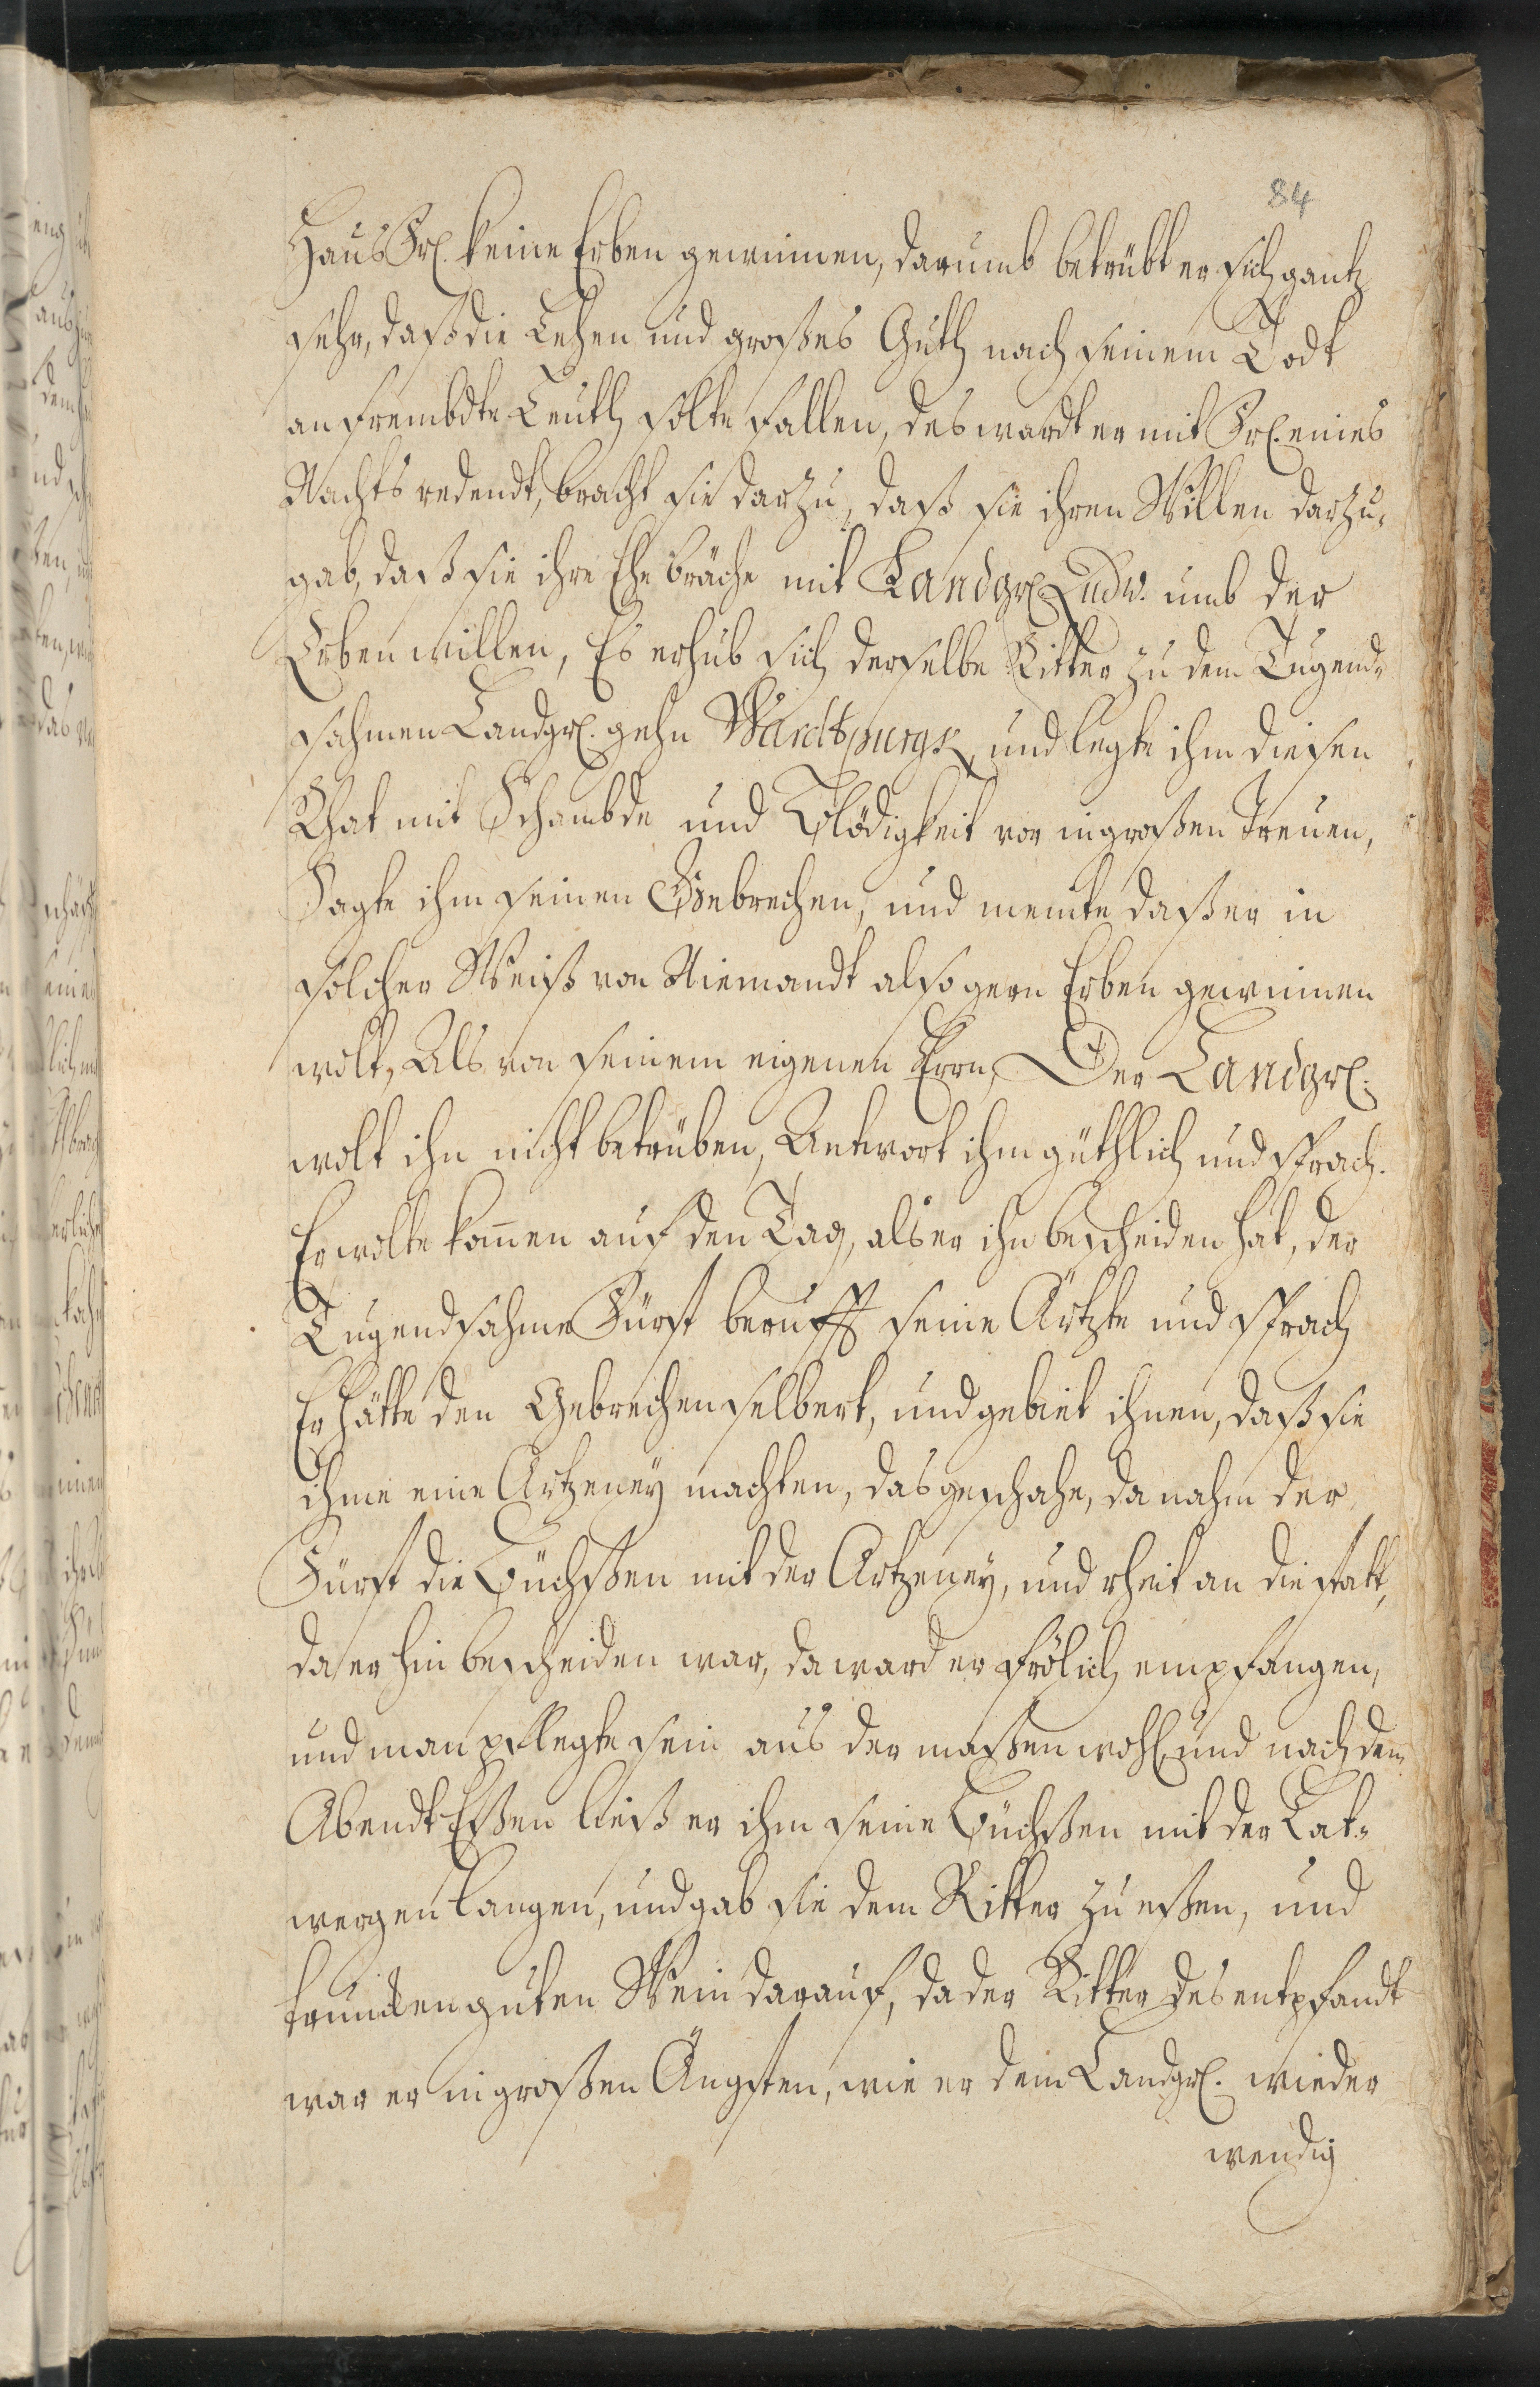 84
Haus Fr. keine Erben gewinnen, darumb betrübt er sich gantz
sehr, daß die Lehen und großes Guth nach seinem Todt
an frembdte Leuth solte fallen, des wardt er mit Fr. eines
Nachts redendt, bracht sie darzu, daß sie ihren Willen darzu-
gab, daß sie ihre Ehe bräche mit Landgr. Ludw. umb der
Erben willen, Es erhub sich derselbe Ritter zu dem Tugend-
sahmen Landgr. gehn Wardtpurgk und legte ihm diesen
Rhat mit Schambde und Blödigkeit vor in großen Treuen,
Sagte ihm seinen Gebrechen, und meinte daß er in
solcher Weiß von Niemandt also gern Erben gewinnen
wolt, Als von seinem eigenen Herrn, Der Landgr.
wolt ihn nicht betrüben, Antwort ihm güthlich und sprach.
Er wolte kom̄en auf den Tag, als er ihn bescheiden hat, der
Tugendsahme Fürst berufft seine Ärtzte und sprach
Er hätte den Gebrechen selbert, und gebiet ihnen, daß sie
ihme eine Artzeney machten, das geschahe, da nahm der
Fürst die Büchßen mit der Artzeney, und rheit an die statt,
da er hin bescheiden war, da ward er frölich empfangen,
und man pflegte sein aus der maßen wohl und nach dem
Abendt Eßen ließ er ihm seine Büchßen mit der Lat-
wergen langen, und gab sie dem Ritter zu eßen, und
truncken guten Wein darauf, da der Ritter des entpfandt
war er in großen Ängsten, wie er dem Landgr. wieder
wendig